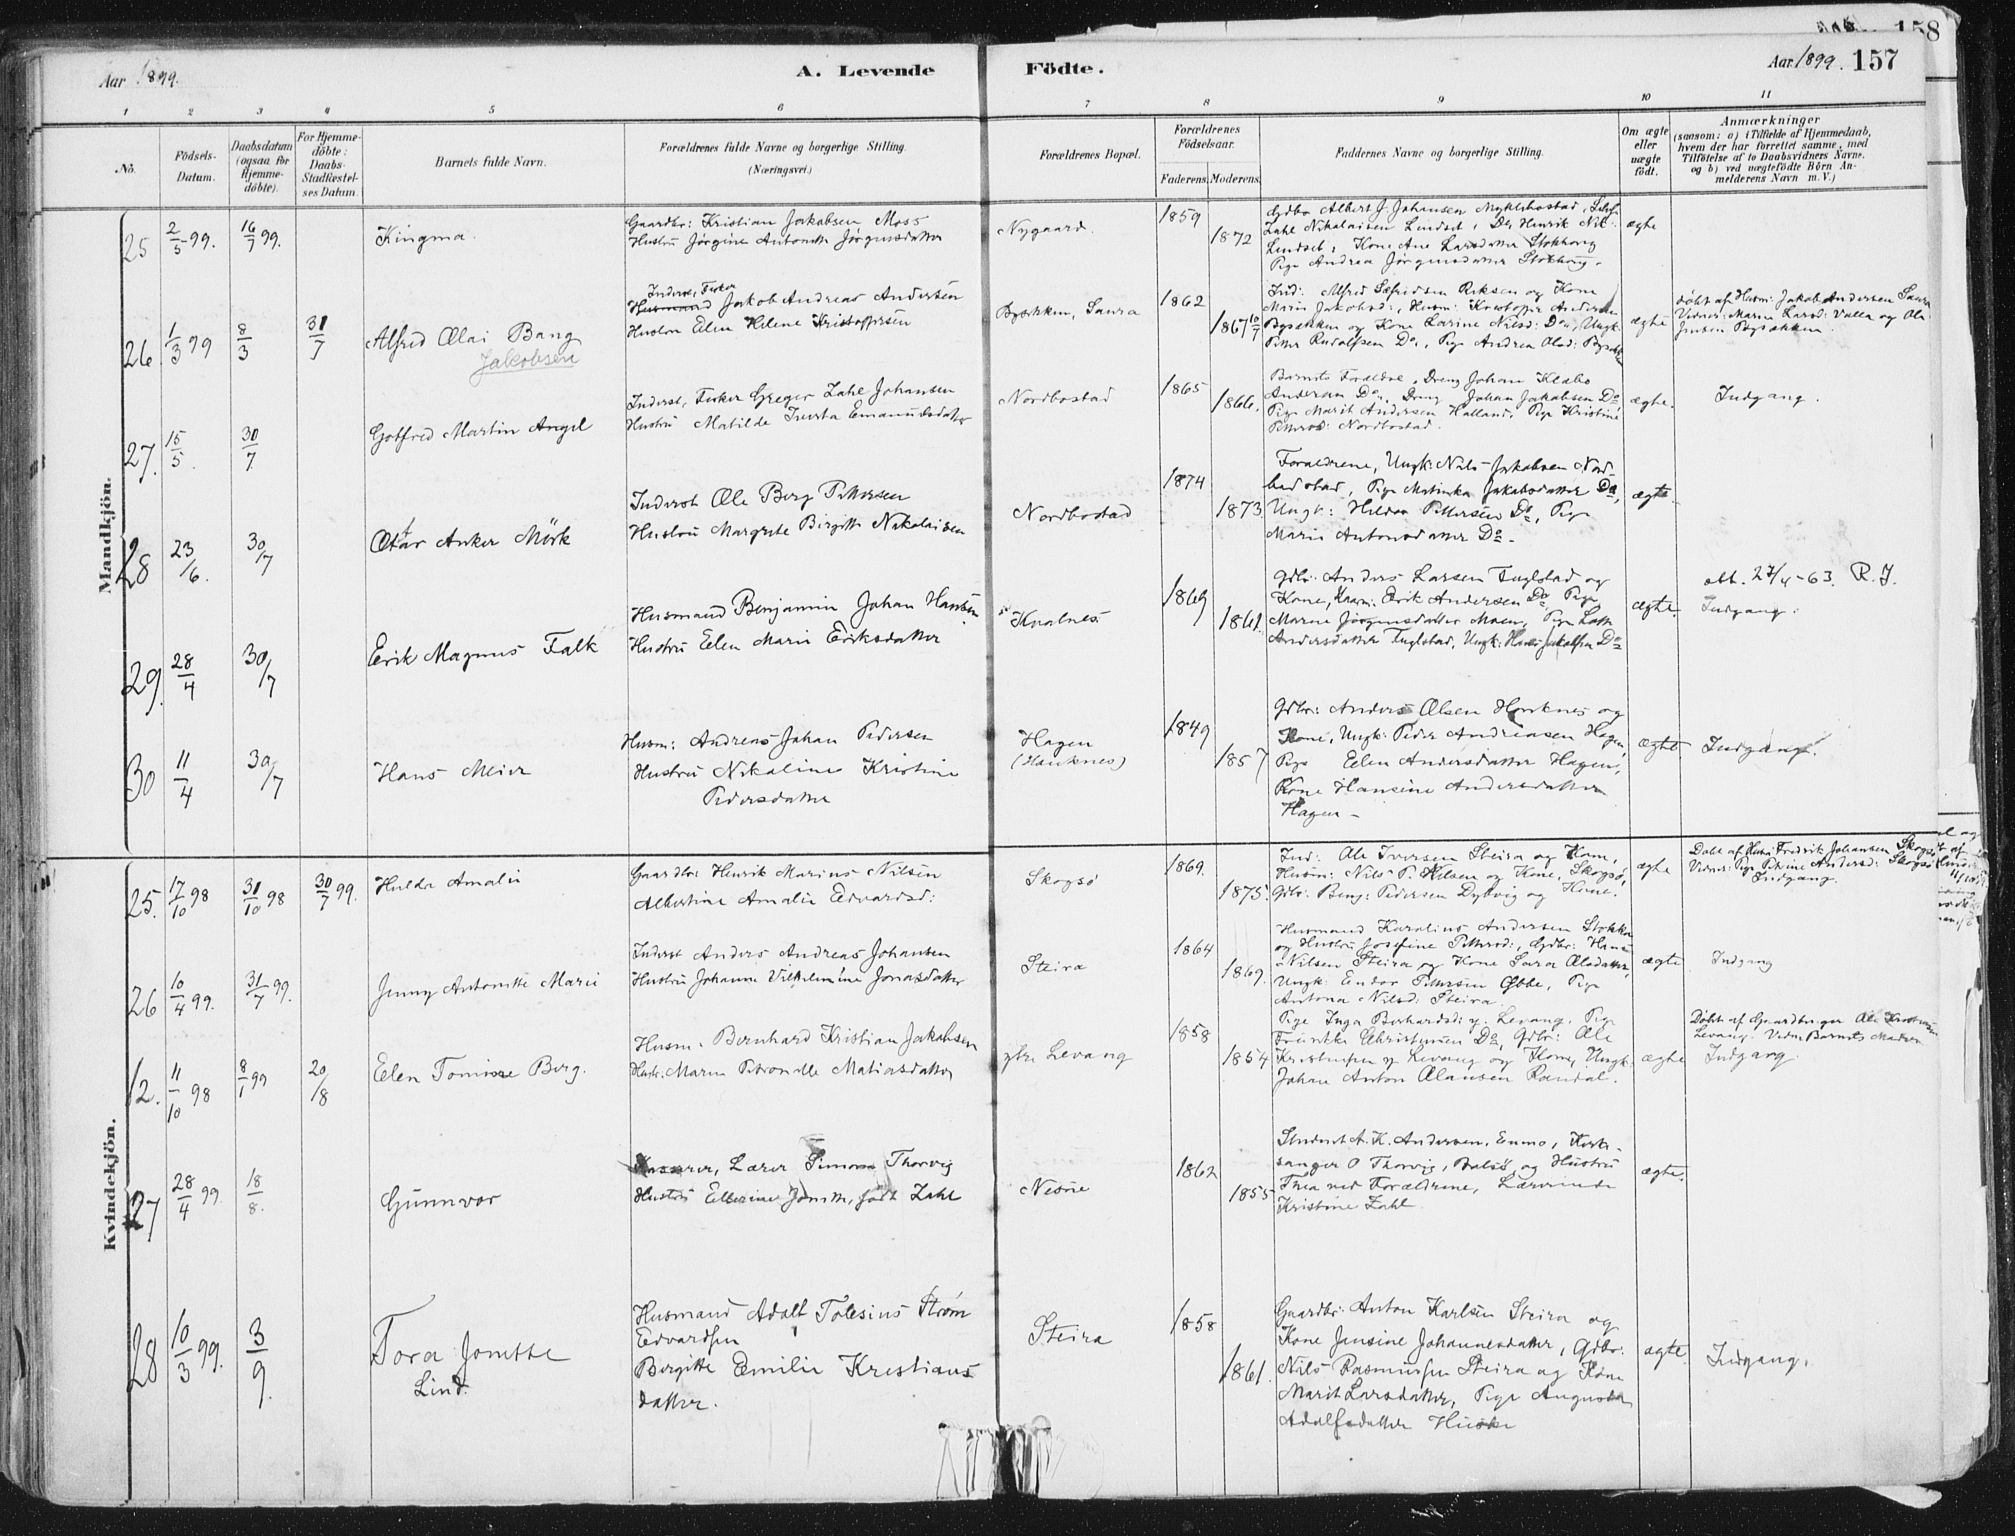 Aar 1899.
A. Levende Födte.
Aar 1899. 157
158
1 2 3 4 5 6 7 8 9 10 11
No.
Födsels-Datum.
Daabsdatum (ogsaa for Hjemme-döbte).
For Hjemme-döbte: Daabs-Stadfestel-ses Datum.
Barnets fulde Navn.
Forældrenes fulde Navne og borgerlige Stilling. (Næringsvei.)
Forældrenes Bopæl.
Forældrenes Födselsaar.
Faderens. Moderens.
Faddernes Navne og borgerlige Stilling.
Om ægte eller uægte födt.
Anmærkninger
(saasom: a) i Tilfælde af Hjemmedaab, hvem der har forrettet samme, med Tilföielse af to Daabsvidners Navne, og b) ved uægtefödte Börn An-melderens Navn m. V.)
Mandkjön.
25 2/5 99. 16/7 99. Kingma.
Gaardbr: Kristian Jakobsen Moss
Hustru Jørgine Antonette Jørginsdatter
Nygaard. 1859 1872
Gdbr Albert J. Johansen Myklebostad,
Zahl Nikolaisen Lindset, Do Henrik Nik.
Lindset, Kone Ane Larsdatter Stokhaug
Pige Andrea Jørginsdatter Stokhaug.
ægte
26. 1/3 99 8/3 31/7 Alfred Olai Bang
Jakobsen
Inderst, Fisker
Husmand Jakob Andreas Andersen
Hustru Elen Helene Kristoffersen
Bysækken, Saura 1862 1867 10/7
Ind: Alfred Sefridsen Riksen og Kone
Marie Jakobsd:, Husm: Kristoffer Andersen
Bysækken og Kone Larine Nilsd: Do, Ungk:
Petter Rudolfsen Do, Pige Andrea Olsd: Bysækken
ægte
døbt af Husm: Jakob Andersen Saura
Vidner: Marie Larsd: Valla og Ole
Jensen Bysækken
27. 15/5. 30/7 Gotfred Martin Angel
Inderst, Fisker Greger Zahl Johansen
Hustru Matilde Iverta Emanuelsdatter
Nordbostad 1865 1866.
Barnets Forældre, Dreng Johan Klæbo
Andersen Do, Dreng Johan Jakobsen Do
Pige Marit Andersen Halland, Pige Kristine
Pettersd: Nordbostad.
ægte. Indgang.
28 23/6. 30/7 Otar Anker Mörk
Inderst Ole Berg Pettersen
Hustru Margrete Birgitte Nikolaisen
Nordbostad 1874 1873
Forældrene, Ungk: Nils Jakobsen Nord-
bostad, Pige Matinka Jakobsdatter Do,
Ungk: Hildor Pettersen Do, Pige
Marie Antonsdatter Do.
ægte.
29. 28/4 30/7 Erik Magnus Falk
Husmand Benjamin Johan Hansen
Hustru Elen Marie Eriksdatter
Kvalnes 1869 1861.
Gdbr: Anders Larsen Fuglstad og
Kone, Husm: Erik Andersen Do, Pige
Marine Jørginsdatter Moen, Pige
Andersdatter Fuglstad, Ungk: Hans Jakobsen Do
ægte.
obt. 27/4-63. R. J.
Indgang.
30 11/4 30/7 Hans Meier
Husm: Andreas Johan Pedersen
Hustru Nikoline Kristine
Pedersdatter
Hagen
(Hauknes)
1849 1857
Gdbr: Anders Olsen Hauknes og
Kone, Ungk: Peder Andreasen Hagen,
Pige Elen Andersdatter Hagen,
Kone Hansine Andersdatter
Hagen -
ægte. Indgang.
Kvindekjön.
25. 17/10 98 31/10 98 30/7 99. Hulda Amalie
Gaardbr: Henrik Marius Nilsen
Albertine Amalie Edvardsd:
Skogsö 1869. 1875.
Ind: Ole Iversen Steira og Kone,
Husm: Nils P. Nilsen og Kone, Skogsö,
Gdbr: Benj: Pedersen Dybvig og Kone.
ægte
Døbt af Husm: Fredrik Johansen Skogsö
Vidner: Pige Petrine Andersd: Skogsö
Indgang.
26 10/4 99. 31/7 99. Jenny Antonette Marie
Inderst Anders Andreas Johansen
Hustru Johanne Vilhelmine Jonasdatter
Steira 1864 1869.
Husmand Karolius Andersen Stokke
og Hustru Josefine Pettersd:, Gdbr: Hans
Nilsen Steira og Kone Sara Olsdatter,
Ungk: Endor Pettersen Ebbe, Pige
Antona Nilsd: Steira.
ægte Indgang
12. 11/10 98 8/1 99 20/8 Elen Tomine Berg.
Husm. Bernhard Kristian Jakobsen
Hustr: Maren Petronelle Matiasdatter
ytre Levang 1858 1854
Pige Inga Berhardsd: y. Levang, Pige
Christensen Do, Gdbr: Ole
Kristensen y Levang og Kone, Ungk:
Johan Anton Olausen Randal.
ægte
Døbt af Gaardbruger Ole Kristensen
Levang. Vidne Barnets Moder
Indgang.
27 28/4 99. 18/8. Gunnvor
Kasserer, Lærer Simon Thorvig
Hustru Ellerine Jonette, født Zahl
Nesne 1862 1855
Student A. K. Andersen, Enmo, Kirke-
sanger O Thorvig, Dalsö, og Hustru
Thea ved Forældrene, Lærerinde
Kristine Zahl.
ægte.
28 10/3 99. 3/9. Tora Jonette
Lind.
Husmand Adolf Tolesius Strøm
Edvardsen
Birgitte Emilie Kristians
datter.
Steira 1858 1861.
Gaardbr: Anton Karlsen Steira og
Kone Jensine Johannesdatter, Gdbr:
Nils Rasmussen Steira og Kone
Marit Larsdatter, Pige Augusta
Adolfsdatter Husbe
ægte. Indgang.